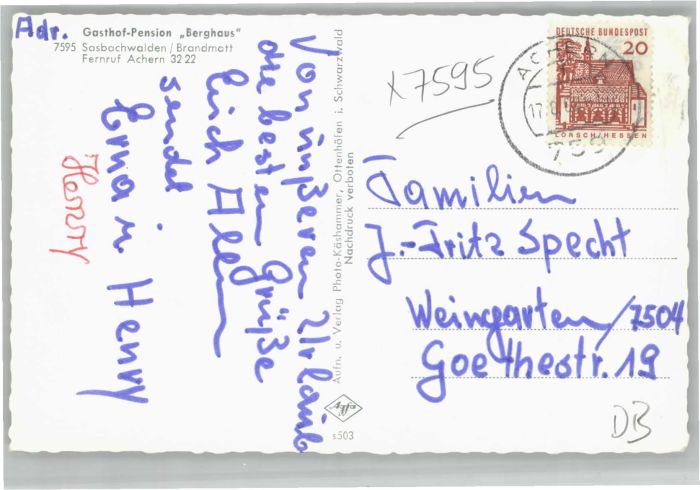 Adr.
Gasthof-Pension „Berghaus"
7595 Sasbachwalden / Brandmatt
Fernruf Achern 32 22
Von unßeren Urlaub
die besten Grüße
Euch Allen
sendet
Erna u. Henry
Henry
Aufn. u. Verlag Photo-Käshammer, Ottenhöfen i. Schwarzwald
Nachdruck verboten
Agfa
s503
x7595
DEUTSCHE BUNDESPOST
20
LORSCH/HESSEN
ACHERN
17.
759
Familien
J.-Fritz Specht
Weingarten/7504
Goethestr. 19
DB